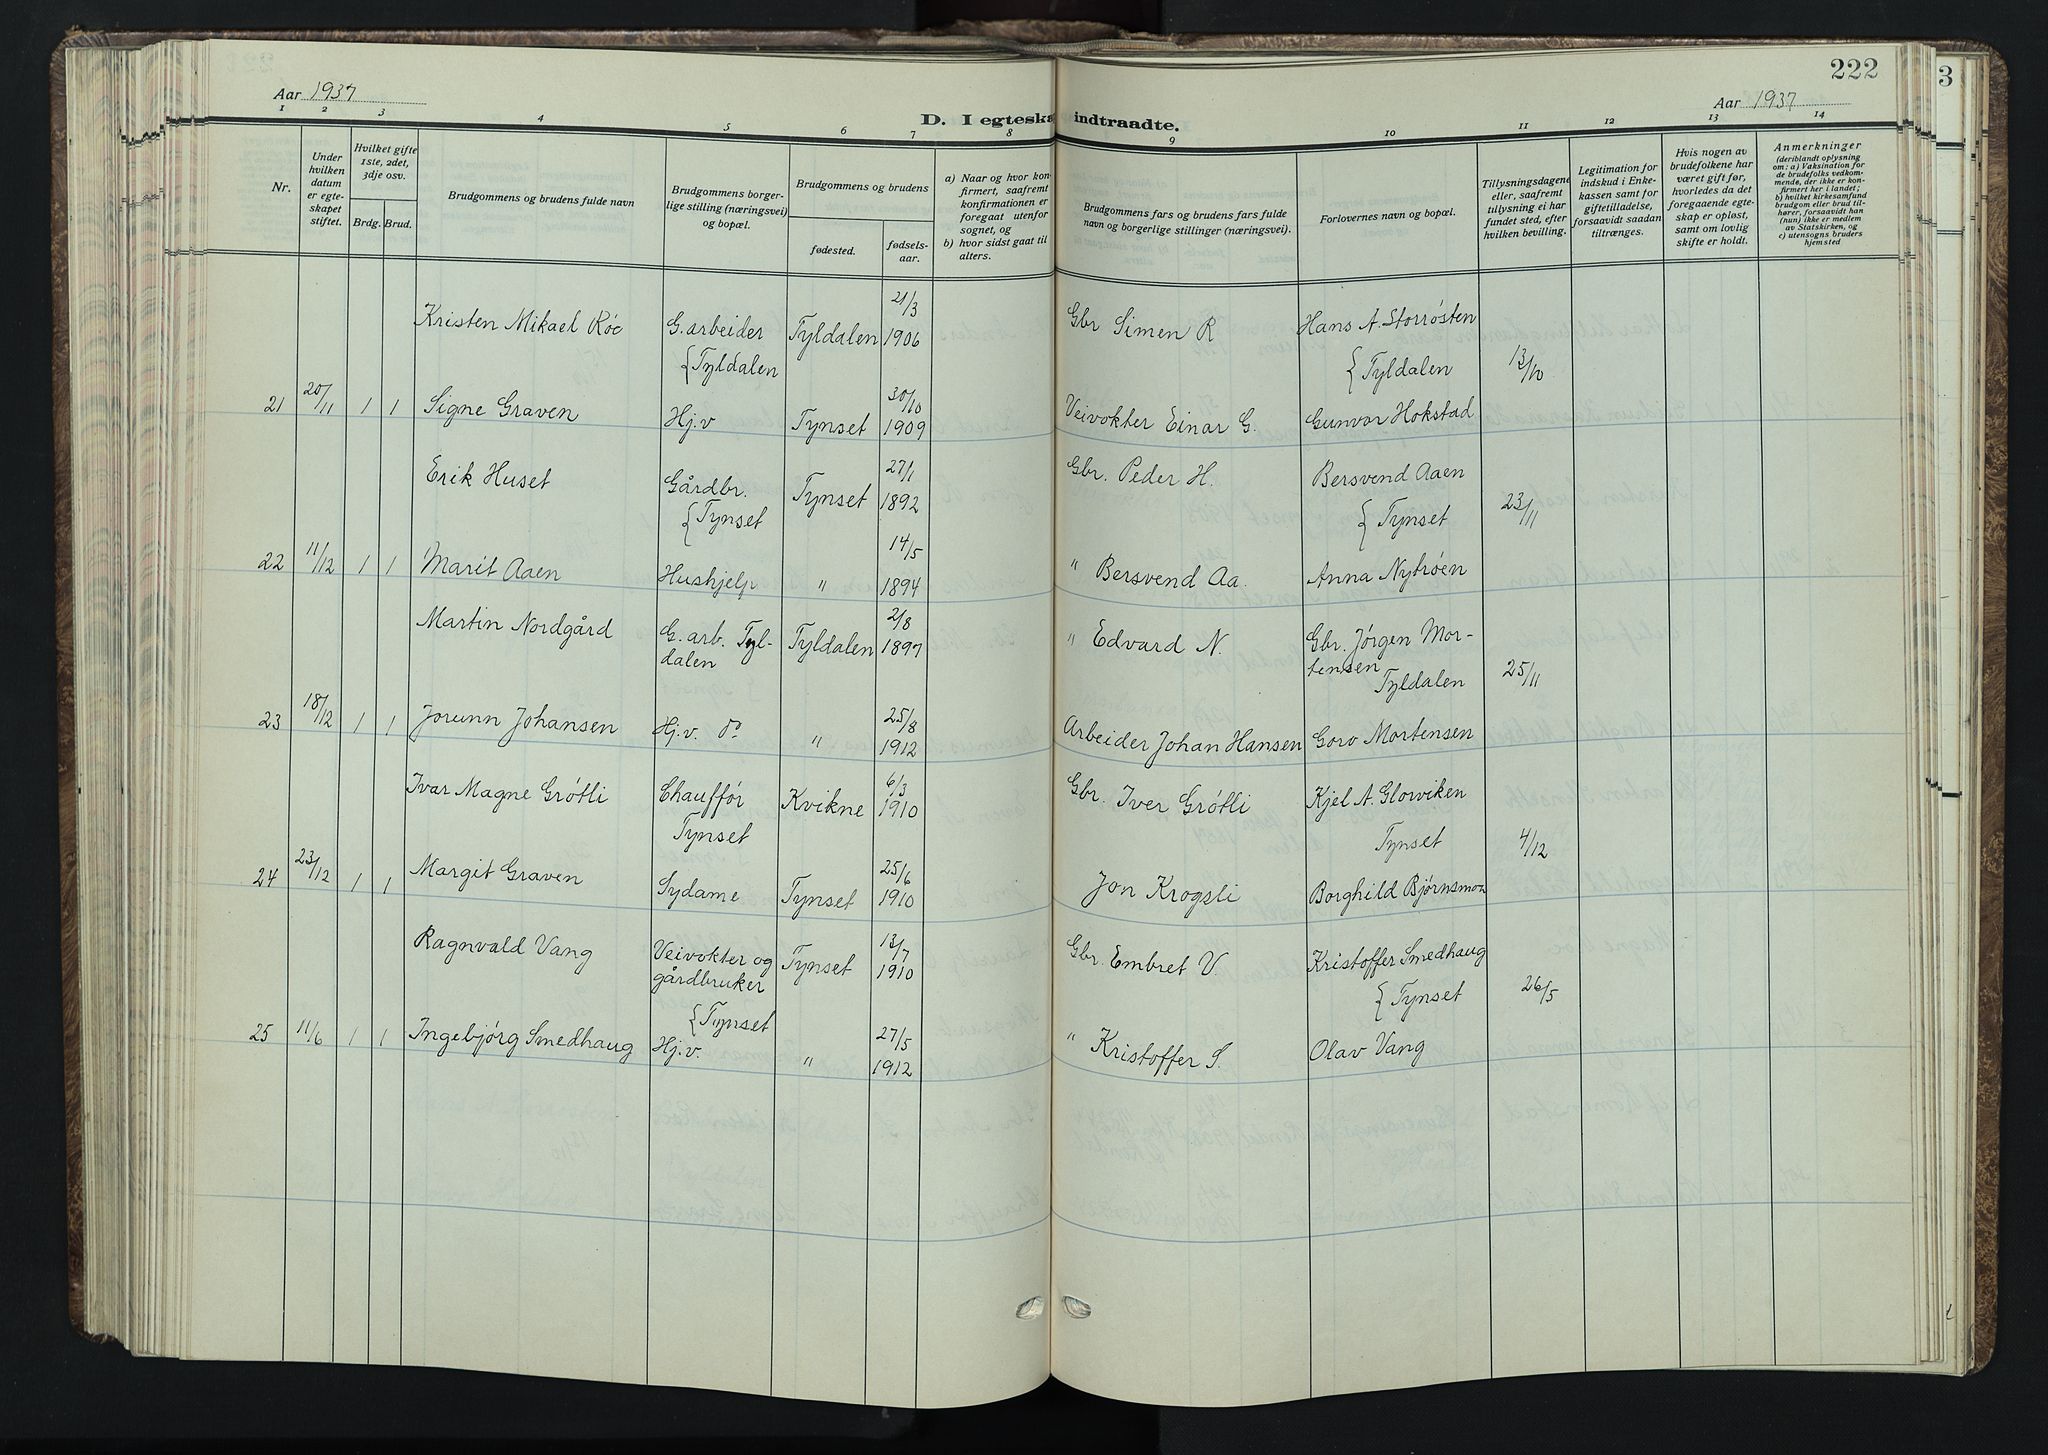 222
3
Aar 1937
Aar 1937
D. I egteska indtraadte.
1 2 3 4 5 6 7 8 9 10 11 12 13 14
Nr.
Under hvilken datum er egte- skapet stiftet.
Hvilket gifte 1ste, 2det, 3dje osv.
Brdg. Brud.
Brudgommens og brudens fulde navn
Brudgommens borger- lige stilling (næringsvei) og bopæl.
Brudgommens og brudens
fødested.
fødsels- aar.
a) Naar og hvor kon- firmert, saafremt konfirmationen er foregaat utenfor sognet, og
b) hvor sidst gaat til alters.
Brudgommens fars og brudens fars fulde navn og borgerlige stillinger (næringsvei).
Forlovernes navn og bopæl.
Tillysningsdagene eller, saafremt tillysning ei har fundet sted, efter hvilken bevilling.
Legitimation for indskud i Enke- kassen samt for giftetilladelse, forsaavidt saadan tiltrænges.
Hvis nogen av brudefolkene har været gift før, hvorledes da det foregaaende egte- skap er opløst, samt om lovlig skifte er holdt.
Anmerkninger (deriblandt oplysning om: a) Vaksination for de brudefolks vedkom- mende, der ikke er kon- firmert her i landet; b) hvilket kirkesamfund brudgom eller brud til- hører, forsaavidt han (hun) ikke er medlem av Statskirken, og c) utensogns bruders hjemsted
21/3
Kristen Mikael Röe G. arbeider Tyldalen 1906 Gbr Simen R Hans A. Storrösten
{Tyldalen {Tyldalen 13/10
21 20/11 1 1 Signe Graven Hj.v Tynset 30/10 1909 Veivokter Einar G. Gunvor Hokstad
27/1
Erik Huset Gårdbr. Tynset 1892 Gbr. Peder H. Bersvend Aaen
{Tynset {Tynset 23/11
22 11/12 1 1 Marit Aaen Hushjelp " 14/5 1894 " Bersvend Aa. Anna Nytröen
2/8
Martin Nordgård G. arb. Tyl- Tyldalen 1897 " Edvard N. Gbr. Jörgen Mor-
dalen tensen
Tyldalen 25/11
23 18/12 1 1 Jorunn Johansen Hj.v. do " 25/8 1912 Arbeider Johan Hansen Goro Mortensen
6/3
Ivar Magne Grötli Chaufför Kvikne 1910 Gbr. Iver Grötli Kjel A. Glorviken
Tynset Tynset 4/12
24 23/12 1 1 Margit Graven Sydame Tynset 25/6 1910 Jon Krogsli Borghild Bjørnsmoa
13/7
Ragnvald Vang Veivokter og Tynset 1910 Gbr. Embret V. Kristoffer Smedhaug
gårdbruker {Tynset 26/5
{Tynset
25 11/6 1 1 Ingebjörg Smedhaug Hj.v. " 27/5 1912 " Kristoffer S. Olav Vang